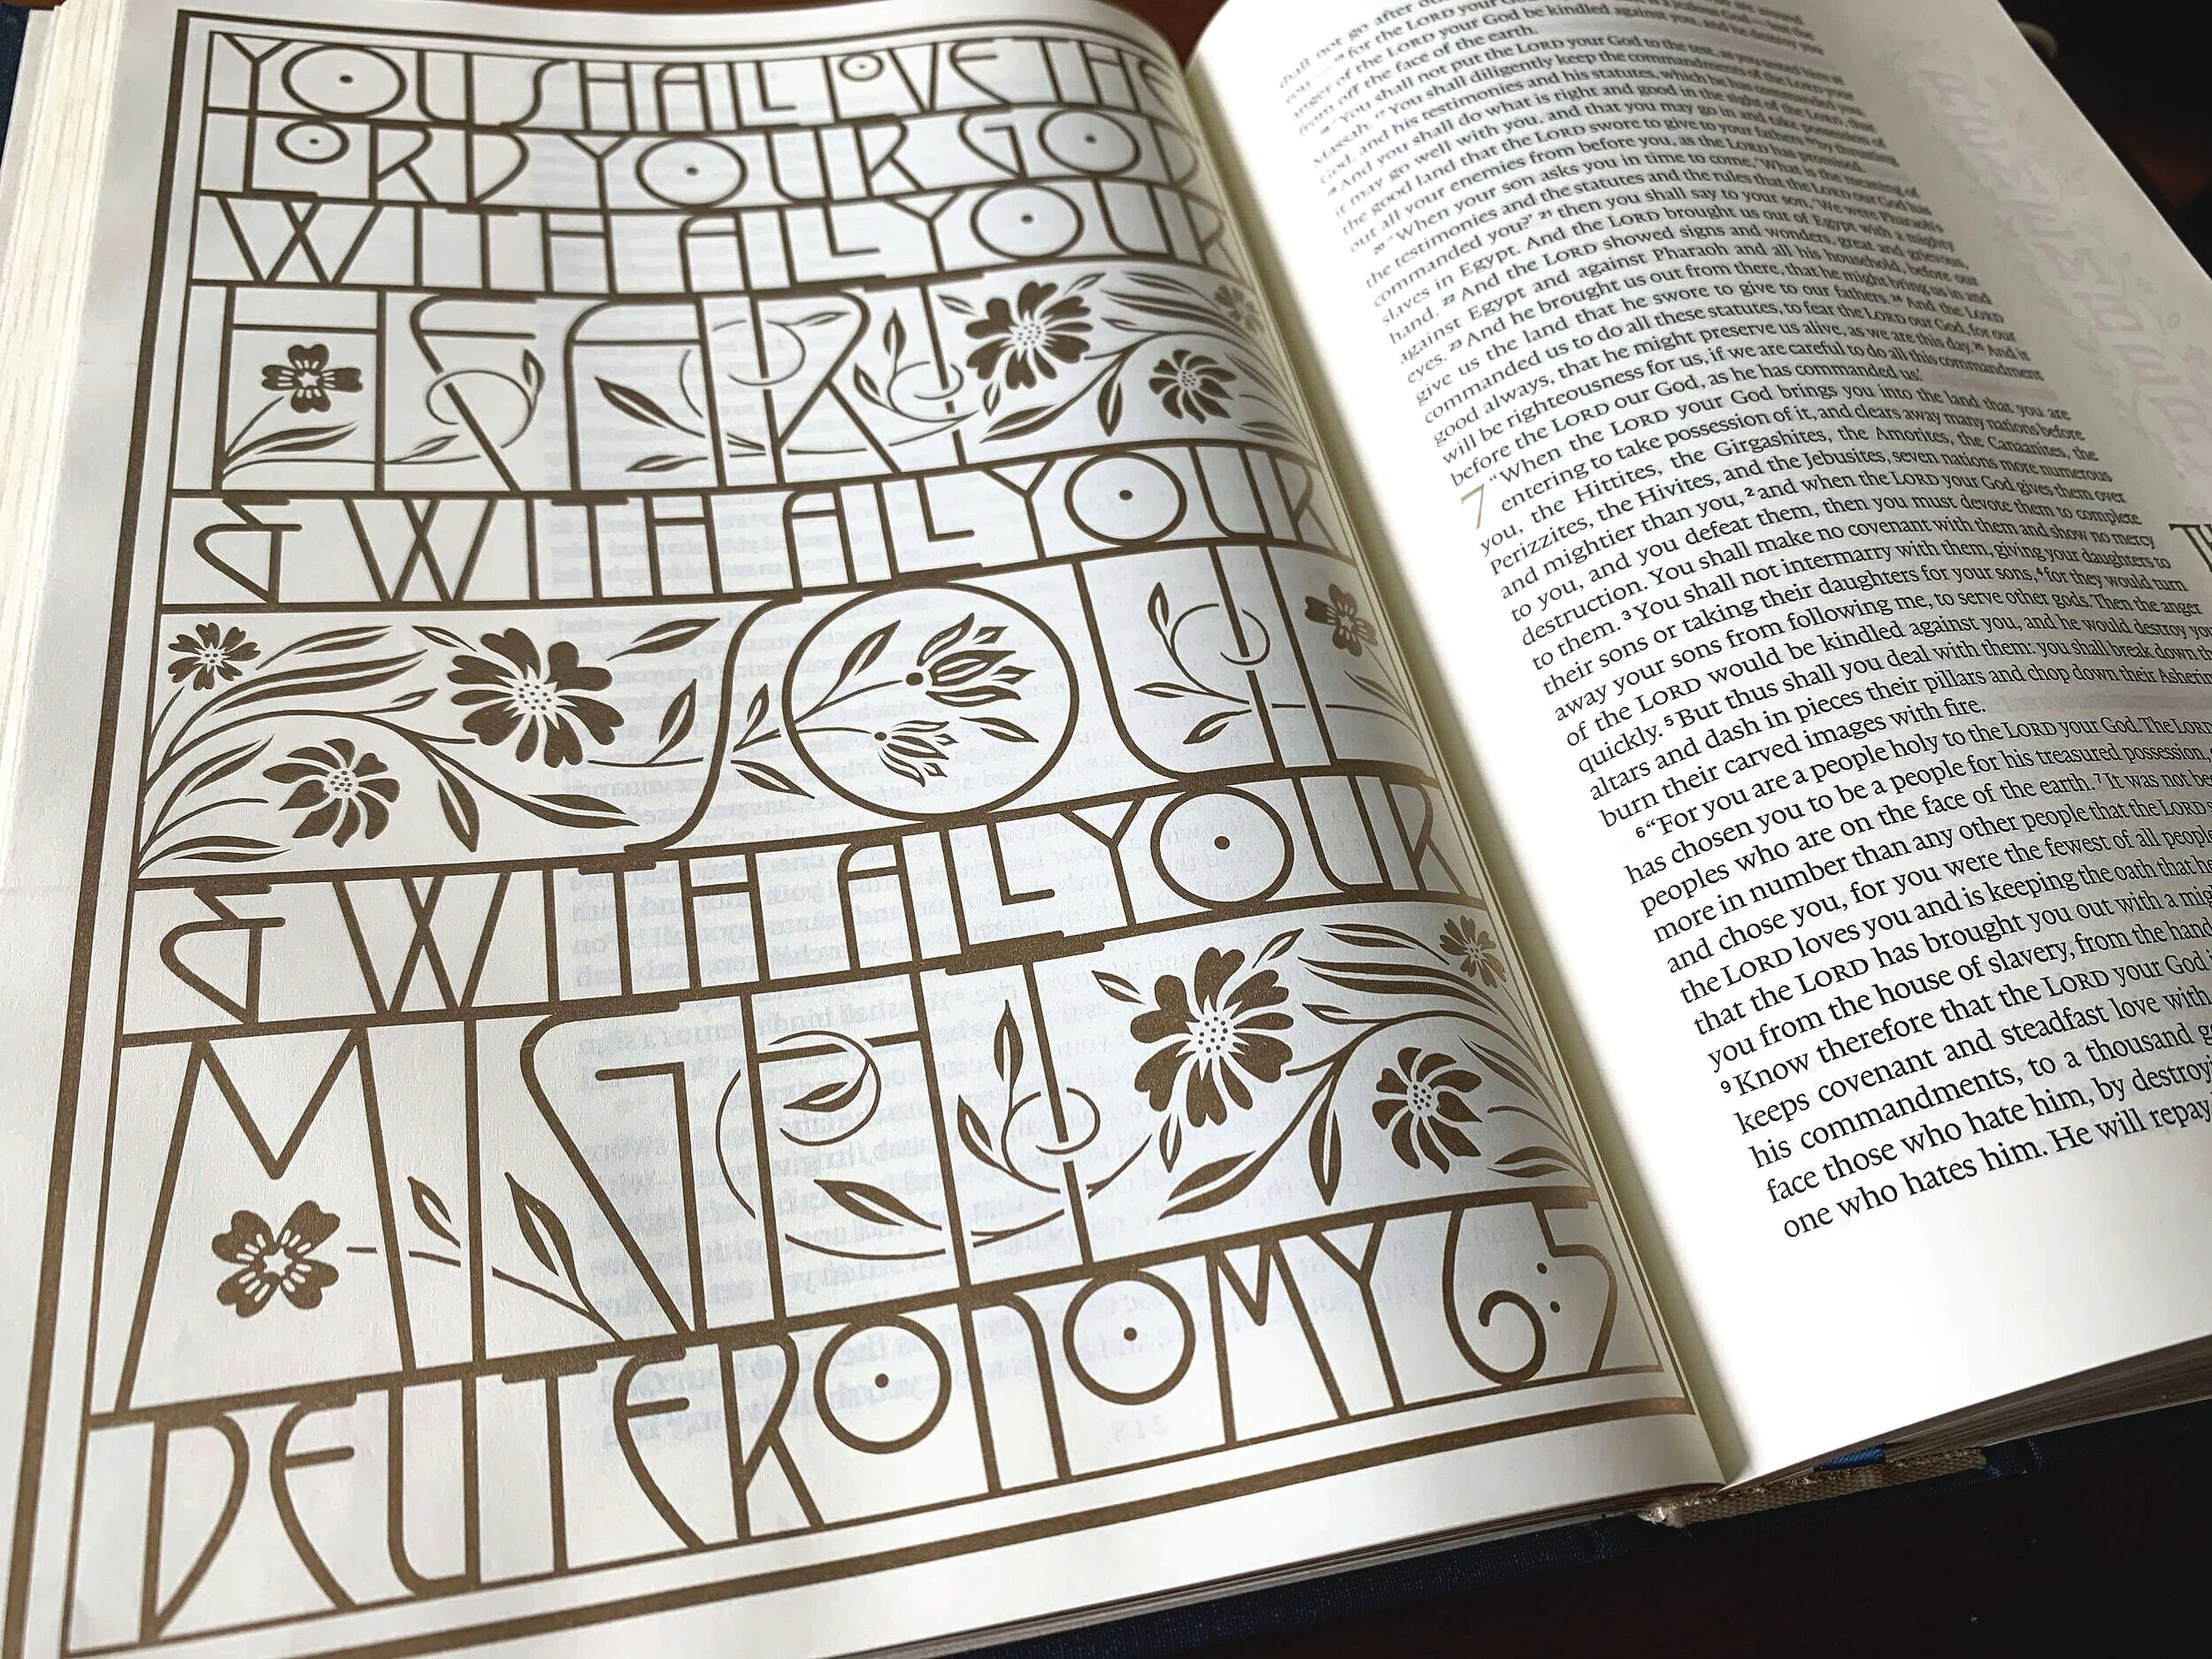 YOU SHALL LOVE THE
LORD YOUR GOD
WITH ALL YOUR
HEART
& WITH ALL YOUR
SOUL
& WITH ALL YOUR
MIGHT
DEUTERONOMY 6:5
shall not go after
for the LORD your God
anger of the LORD your God be kindled against you, and he destroy you
from off the face of the earth.
"You shall not put the LORD your God to the test, as you tested him at
Massah. 17 You shall diligently keep the commandments of the LORD your
God, and his testimonies and his statutes, which he has commanded you.
18 And you shall do what is right and good in the sight of the LORD, that
it may go well with you, and that you may go in and take possession of
the good land that the LORD swore to give to your fathers 19 by thrusting
out all your enemies from before you, as the LORD has promised.
20 "When your son asks you in time to come, 'What is the meaning of
the testimonies and the statutes and the rules that the LORD our God has
commanded you?' 21 then you shall say to your son, 'We were Pharaoh's
slaves in Egypt. And the LORD brought us out of Egypt with a mighty
hand. 22 And the LORD showed signs and wonders, great and grievous,
against Egypt and against Pharaoh and all his household, before our
eyes. 23 And he brought us out from there, that he might bring us in and
give us the land that he swore to give to our fathers. 24 And the LORD
commanded us to do all these statutes, to fear the LORD our God, for our
good always, that he might preserve us alive, as we are this day. 25 And it
will be righteousness for us, if we are careful to do all this commandment
before the LORD our God, as he has commanded us.'
7 "When the LORD your God brings you into the land that you are
entering to take possession of it, and clears away many nations before
you, the Hittites, the Girgashites, the Amorites, the Canaanites, the
Perizzites, the Hivites, and the Jebusites, seven nations more numerous
and mightier than you, 2 and when the LORD your God gives them over
to you, and you defeat them, then you must devote them to complete
destruction. You shall make no covenant with them and show no mercy
to them. 3 You shall not intermarry with them, giving your daughters to
their sons or taking their daughters for your sons, 4 for they would turn
away your sons from following me, to serve other gods. Then the anger
of the LORD would be kindled against you, and he would destroy you
quickly. 5 But thus shall you deal with them: you shall break down their
altars and dash in pieces their pillars and chop down their Asherim
burn their carved images with fire.
6 "For you are a people holy to the LORD your God. The LORD
has chosen you to be a people for his treasured possession,
peoples who are on the face of the earth. 7 It was not be
more in number than any other people that the LORD
and chose you, for you were the fewest of all people
the LORD loves you and is keeping the oath that he
that the LORD has brought you out with a mig
you from the house of slavery, from the hand
9 Know therefore that the LORD your God i
keeps covenant and steadfast love with
his commandments, to a thousand g
face those who hate him, by destroyi
one who hates him. He will repay